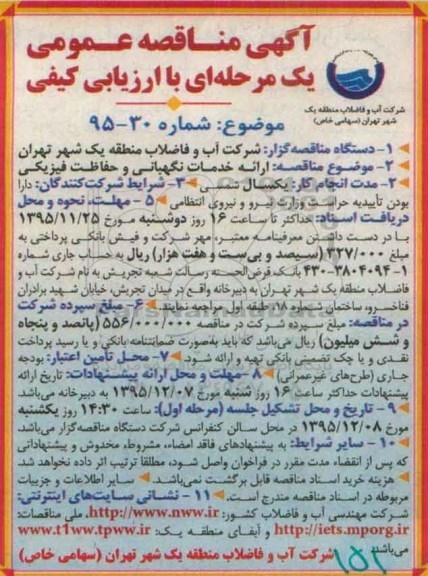 آگهی مناقصه عمومی
یک مرحله‌ای با ارزیابی کیفی
شرکت آب و فاضلاب منطقه یک
شهر تهران (سهامی خاص)
موضوع: شماره ۳۰-۹۵
۱- دستگاه مناقصه‌گزار: شرکت آب و فاضلاب منطقه یک شهر تهران
۲- موضوع مناقصه: ارائه خدمات نگهبانی و حفاظت فیزیکی
۳- مدت انجام کار: یکسال شمسی ۳- شرایط شرکت‌کنندگان: دارا
بودن تأییدیه حراست وزارت نیرو و نیروی انتظامی ۵- مهلت، نحوه و محل
دریافت اسناد: حداکثر تا ساعت ۱۶ روز دوشنبه مورخ ۱۳۹۵/۱۱/۲۵
با در دست داشتن معرفینامه معتبر، مهر شرکت و فیش بانکی پرداختی به
مبلغ ۳۲۷/۰۰۰ (سیصد و بی‌ست و هفت هزار) ریال به حساب جاری شماره
۱-۳۸۰۴۰۹۴-۴۳۰ بانک قرض‌الحسنه رسالت شعبه تجریش به نام شرکت آب و
فاضلاب منطقه یک شهر تهران به دبیرخانه واقع در میدان تجریش، خیابان شهید برادران
فناخسرو، ساختمان شماره ۱۸ طبقه اول مراجعه نمایند. ۶- مبلغ سپرده شرکت
در مناقصه: مبلغ سپرده شرکت در مناقصه ۵۵۶/۰۰۰/۰۰۰ (پانصد و پنجاه
و شش میلیون) ریال می‌باشد که باید به‌صورت ضمانتنامه بانکی و یا رسید پرداخت
نقدی و یا چک تضمینی بانکی تهیه و ارائه شود. ۷- محل تأمین اعتبار: بودجه
جاری (طرح‌های غیرعمرانی) ۸- مهلت و محل ارائه پیشنهادات: تاریخ ارائه
پیشنهادات حداکثر ساعت ۱۶ روز شنبه مورخ ۱۳۹۵/۱۲/۰۷ به دبیرخانه می‌باشد.
۹- تاریخ و محل تشکیل جلسه (مرحله اول): ساعت ۱۴:۳۰ روز یکشنبه
مورخ ۱۳۹۵/۱۲/۰۸ در محل سالن کنفرانس شرکت دستگاه مناقصه‌گزار می‌باشد
۱۰- سایر شرایط: به پیشنهادهای فاقد امضاء، مشروط، مخدوش و پیشنهاداتی
که پس از انقضاء مدت مقرر در فراخوان واصل شود، مطلقا ترتیب اثر داده نخواهد شد.
هزینه خرید اسناد مناقصه قابل برگشت نمی‌باشد. سایر اطلاعات و جزییات
مربوطه در اسناد مناقصه مندرج است. ۱۱- نشانی سایت‌های اینترنتی:
شرکت مهندسی آب و فاضلاب کشور: http://www.nww.ir، ملی مناقصات:
http://iets.mporg.ir و آبفای منطقه یک: www.t1ww.tpww.ir
می‌باشد.
شرکت آب و فاضلاب منطقه یک شهر تهران (سهامی خاص)
۱۵۱